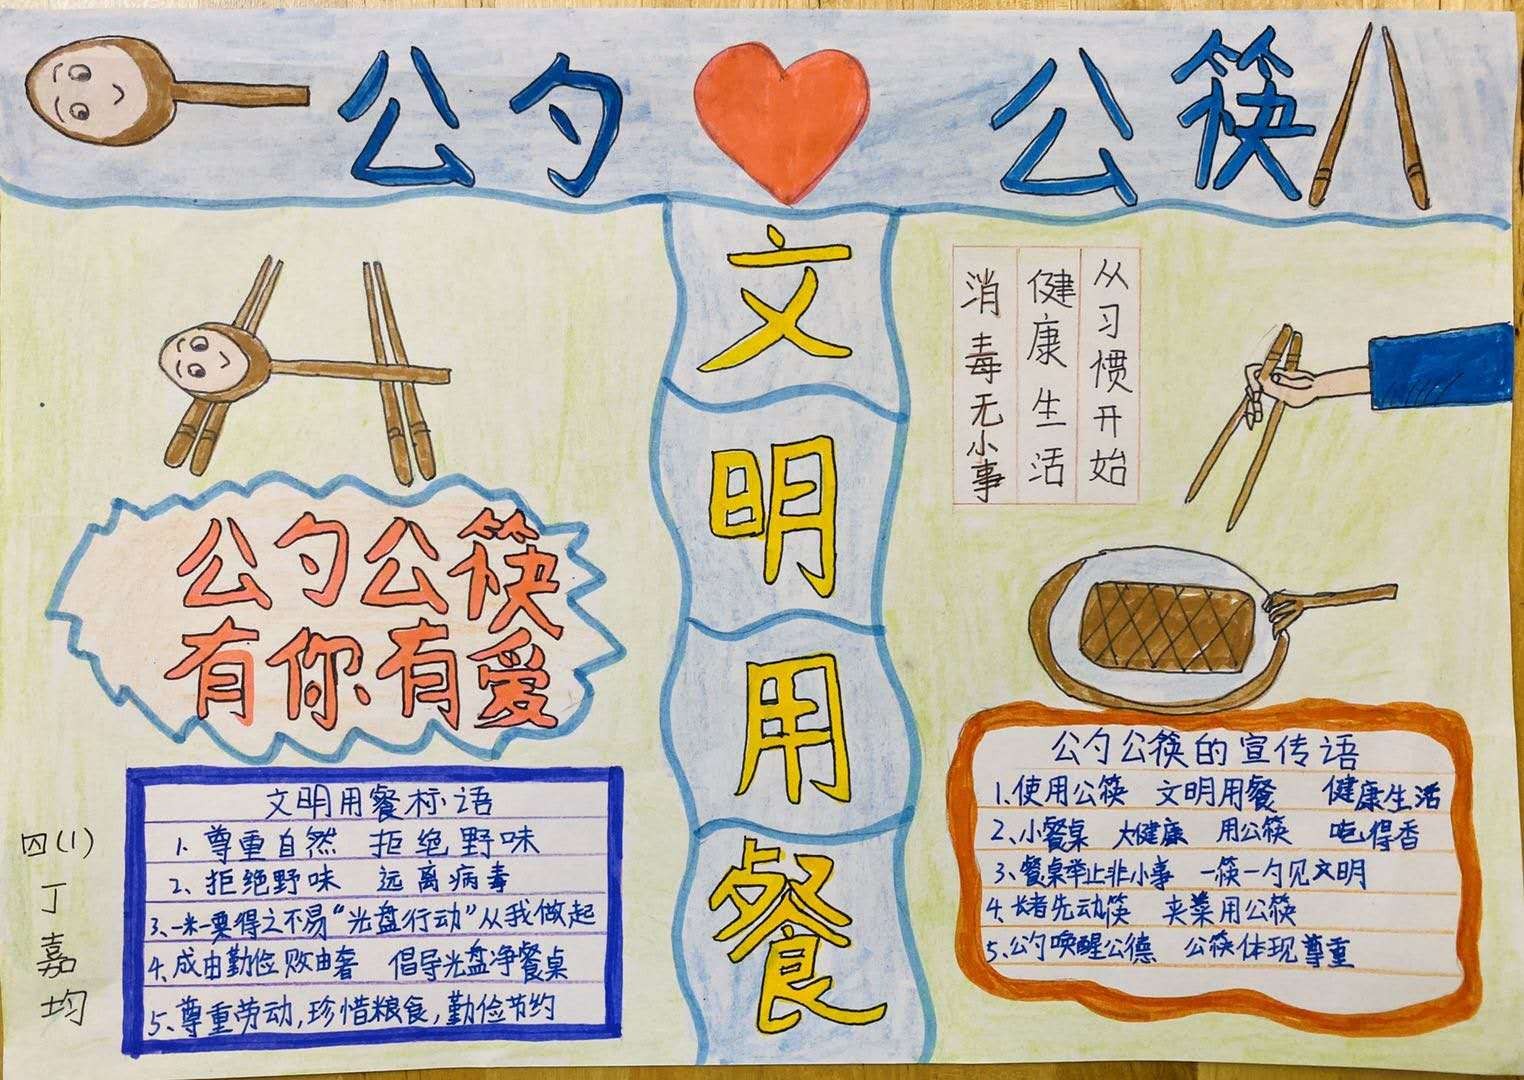 公勺 公筷
文明用餐
公勺公筷
有你有爱
从习惯开始
健康生活
消毒无小事
文明用餐标语
1. 尊重自然 拒绝野味
2、拒绝野味 远离病毒
3、一米一粟得之不易“光盘行动”从我做起
4、成由勤俭败由奢 倡导光盘净餐桌
5、尊重劳动,珍惜粮食,勤俭节约
公勺公筷的宣传语
1、使用公筷 文明用餐 健康生活
2、小餐桌 大健康 用公筷 吃得香
3、餐桌举止非小事 一筷一勺见文明
4、长者先动筷 夹菜用公筷
5、公勺唤醒公德 公筷体现尊重
四(1)
丁嘉均